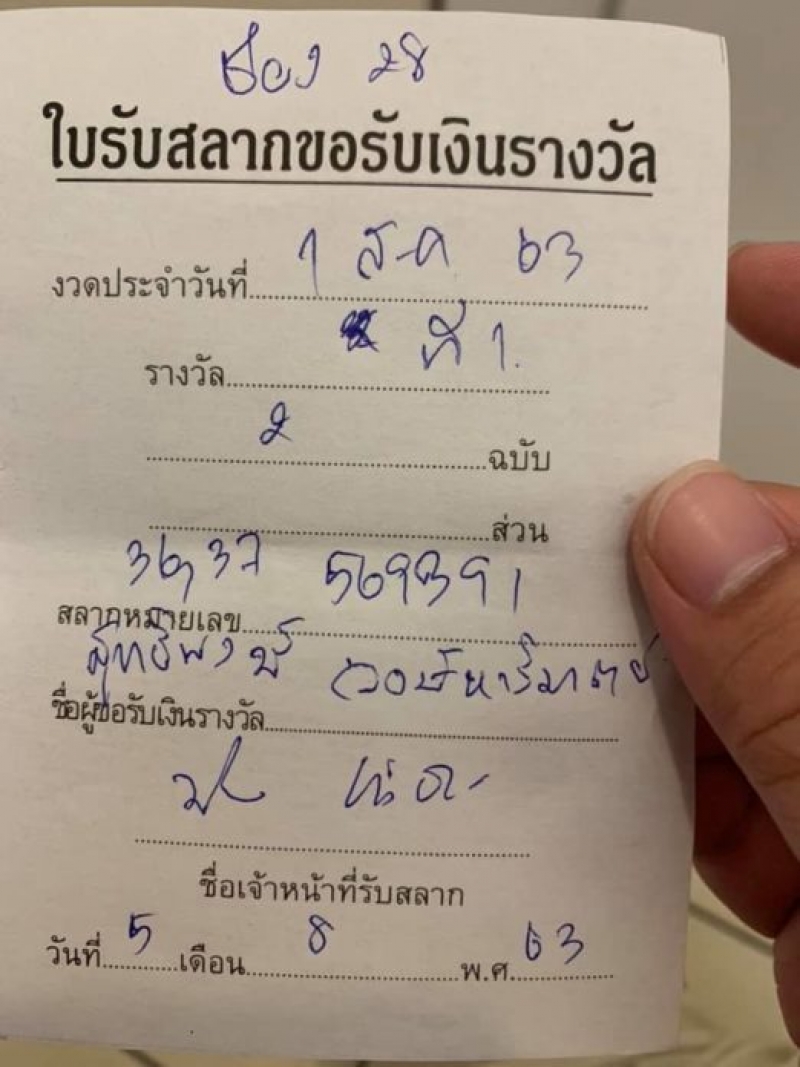 ช่อง 28
ใบรับสลากขอรับเงินรางวัล
งวดประจำวันที่ 1 ส.ค 63
รางวัล ที่ 1.
2 ฉบับ
ส่วน
36,37 569391
สลากหมายเลข
สุทธิพงษ์ วงษ์หาริมาตย์
ชื่อผู้ขอรับเงินรางวัล
ชื่อเจ้าหน้าที่รับสลาก
วันที่ 5 เดือน 8 พ.ศ. 63